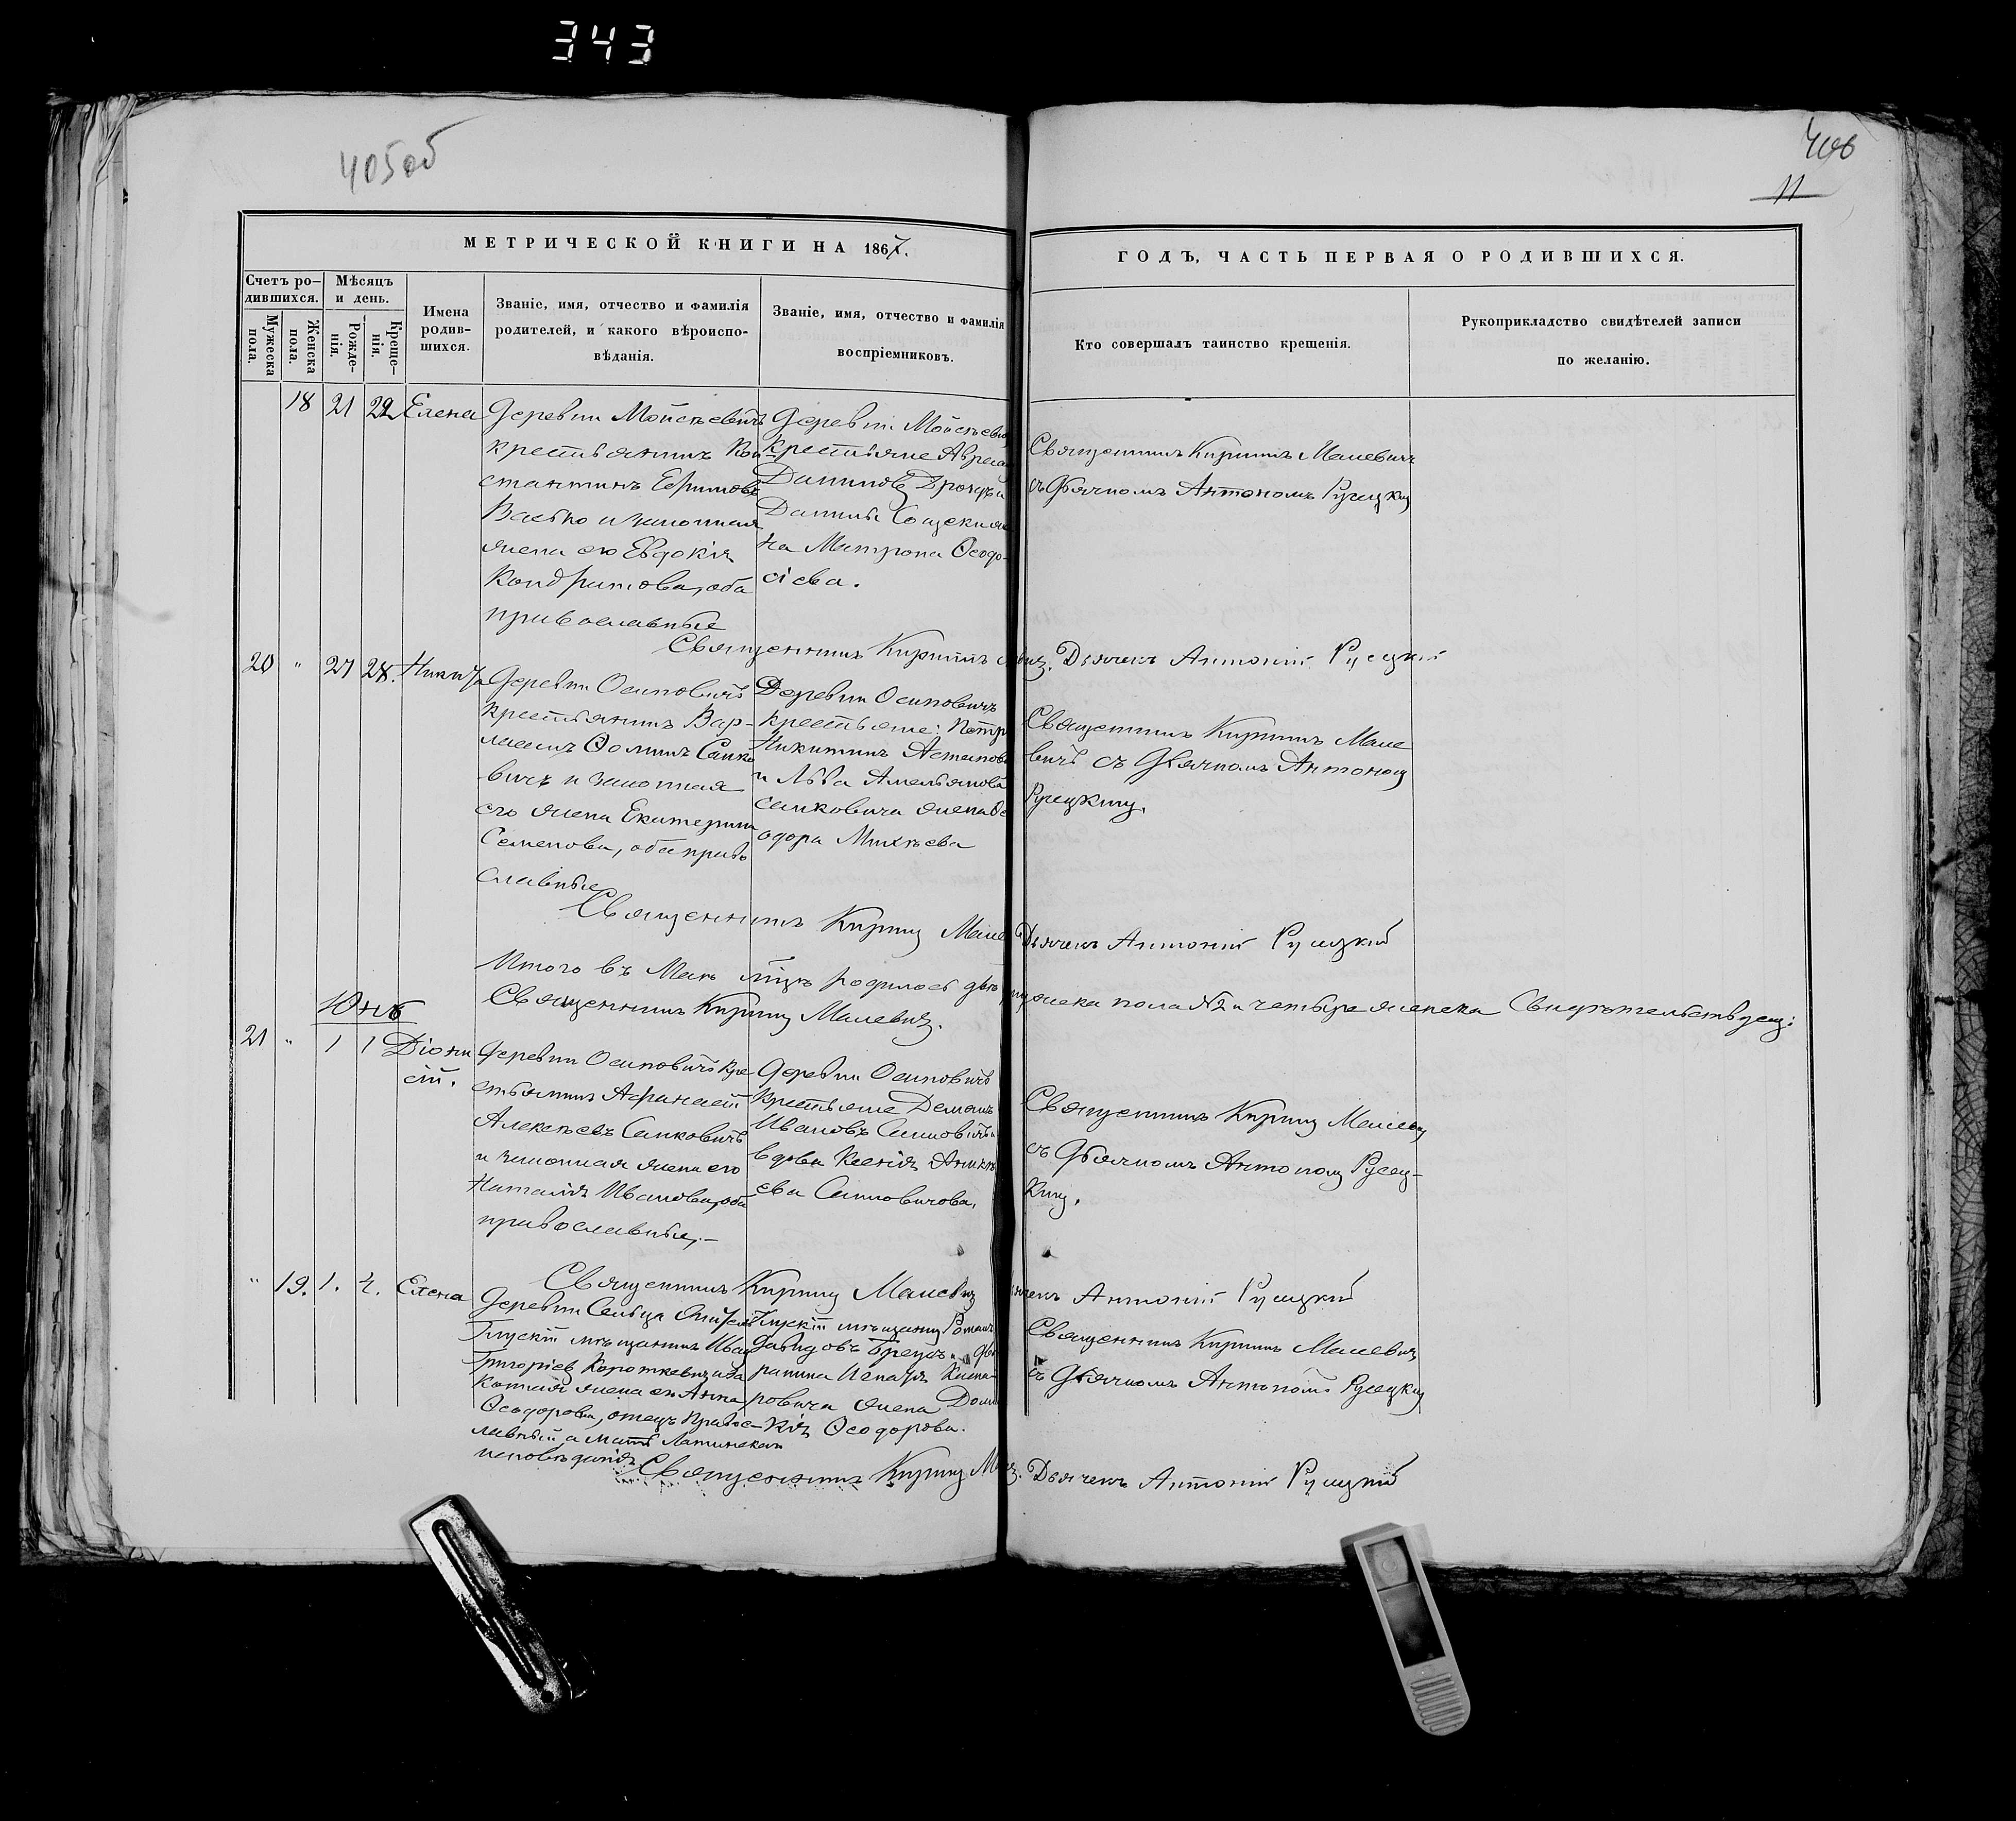 343
405об
406
11
МЕТРИЧЕСКОЙ КНИГИ НА 1867.
ГОДЪ, ЧАСТЬ ПЕРВАЯ О РОДИВШИХСЯ.
Счетъ ро-
дившихся.
Мужеска
пола.
Женска
пола.
Мѣсяцъ
и день.
Рожде-
нія.
Креще-
нія.
Имена
родив-
шихся.
Званіе, имя, отчество и фамилія
родителей, и какого вѣроиспо-
вѣданія.
Званіе, имя, отчество и фамилія
воспріемниковъ.
Кто совершалъ таинство крещенія.
Рукоприкладство свидѣтелей записи
по желанію.
18 21 22 Елена
Деревни Мойсѣевичъ
крестьянинъ Кон-
стантинъ Ефимовъ
Васько и законная
жена его Евдокія
Кондратова, оба
православные
Деревни Мойсѣевичъ
крестьяне
Даниловъ
Даниила
на Матрона Ѳеодо-
сіева.
Священникъ Кириллъ Малевичъ
съ Дьячкомъ Антономъ Русецкимъ
Священникъ Кириллъ Дьячекъ Антоній Русецкій
20 " 27 28. Никита
Деревни Осиповичъ
крестьянинъ Вар-
лаамъ Ѳоминъ Санко
вичъ и законная
его жена Екатерина
Семенова, оба право
славные
Деревни Осиповичъ
крестьяне: Петръ
Никитинъ Астаповъ
и Льва Амельянова
Санковича жена Ѳе
одора Михѣева
Священникъ Кириллъ Мале
вичъ съ Дьячкомъ Антономъ
Русецкимъ.
Священникъ Кириллъ Мале Дьячекъ Антоній Русецкій
Итого въ Маѣ мцѣ родилось два мужеска пола № 2 и четыре женска Свидѣтельствуемъ:
Священникъ Кириллъ Малевичъ.
Юнь
21 " 1 1 Діони
сій.
Деревни Осиповичъ кре
стьянинъ Афанасій
Алексѣевъ Санковичъ
и законная жена его
Наталія Иванова, оба
православные,-
Деревни Осиповичъ
крестьяне Демьянъ
Ивановъ Санковичъ и
вдова Ксенія
ева Санковичова.
Священникъ Кириллъ Малевичъ
съ Дьячкомъ Антономъ Русец-
кимъ.
Священникъ Кириллъ Малевичъ Дьячекъ Антоній Русецкій
" 19. 1. 4. Елена
Деревни Сельца
Глускій мѣщанинъ Иванъ
Григоріевъ Короткевичъ и за
конная жена его Анна
Ѳеодорова, отецъ Правос-
лавный а мать Латинскаго
исповѣданія.
Глускій мѣщанинъ Романъ
Давидовъ и дво
рянина Игнатія
ровича жена Доми
кія Ѳеодорова.
Священникъ Кириллъ Малевичъ
съ Дьячкомъ Антономъ Русецкимъ
Священникъ Кириллъ Дьячекъ Антоній Русецкій